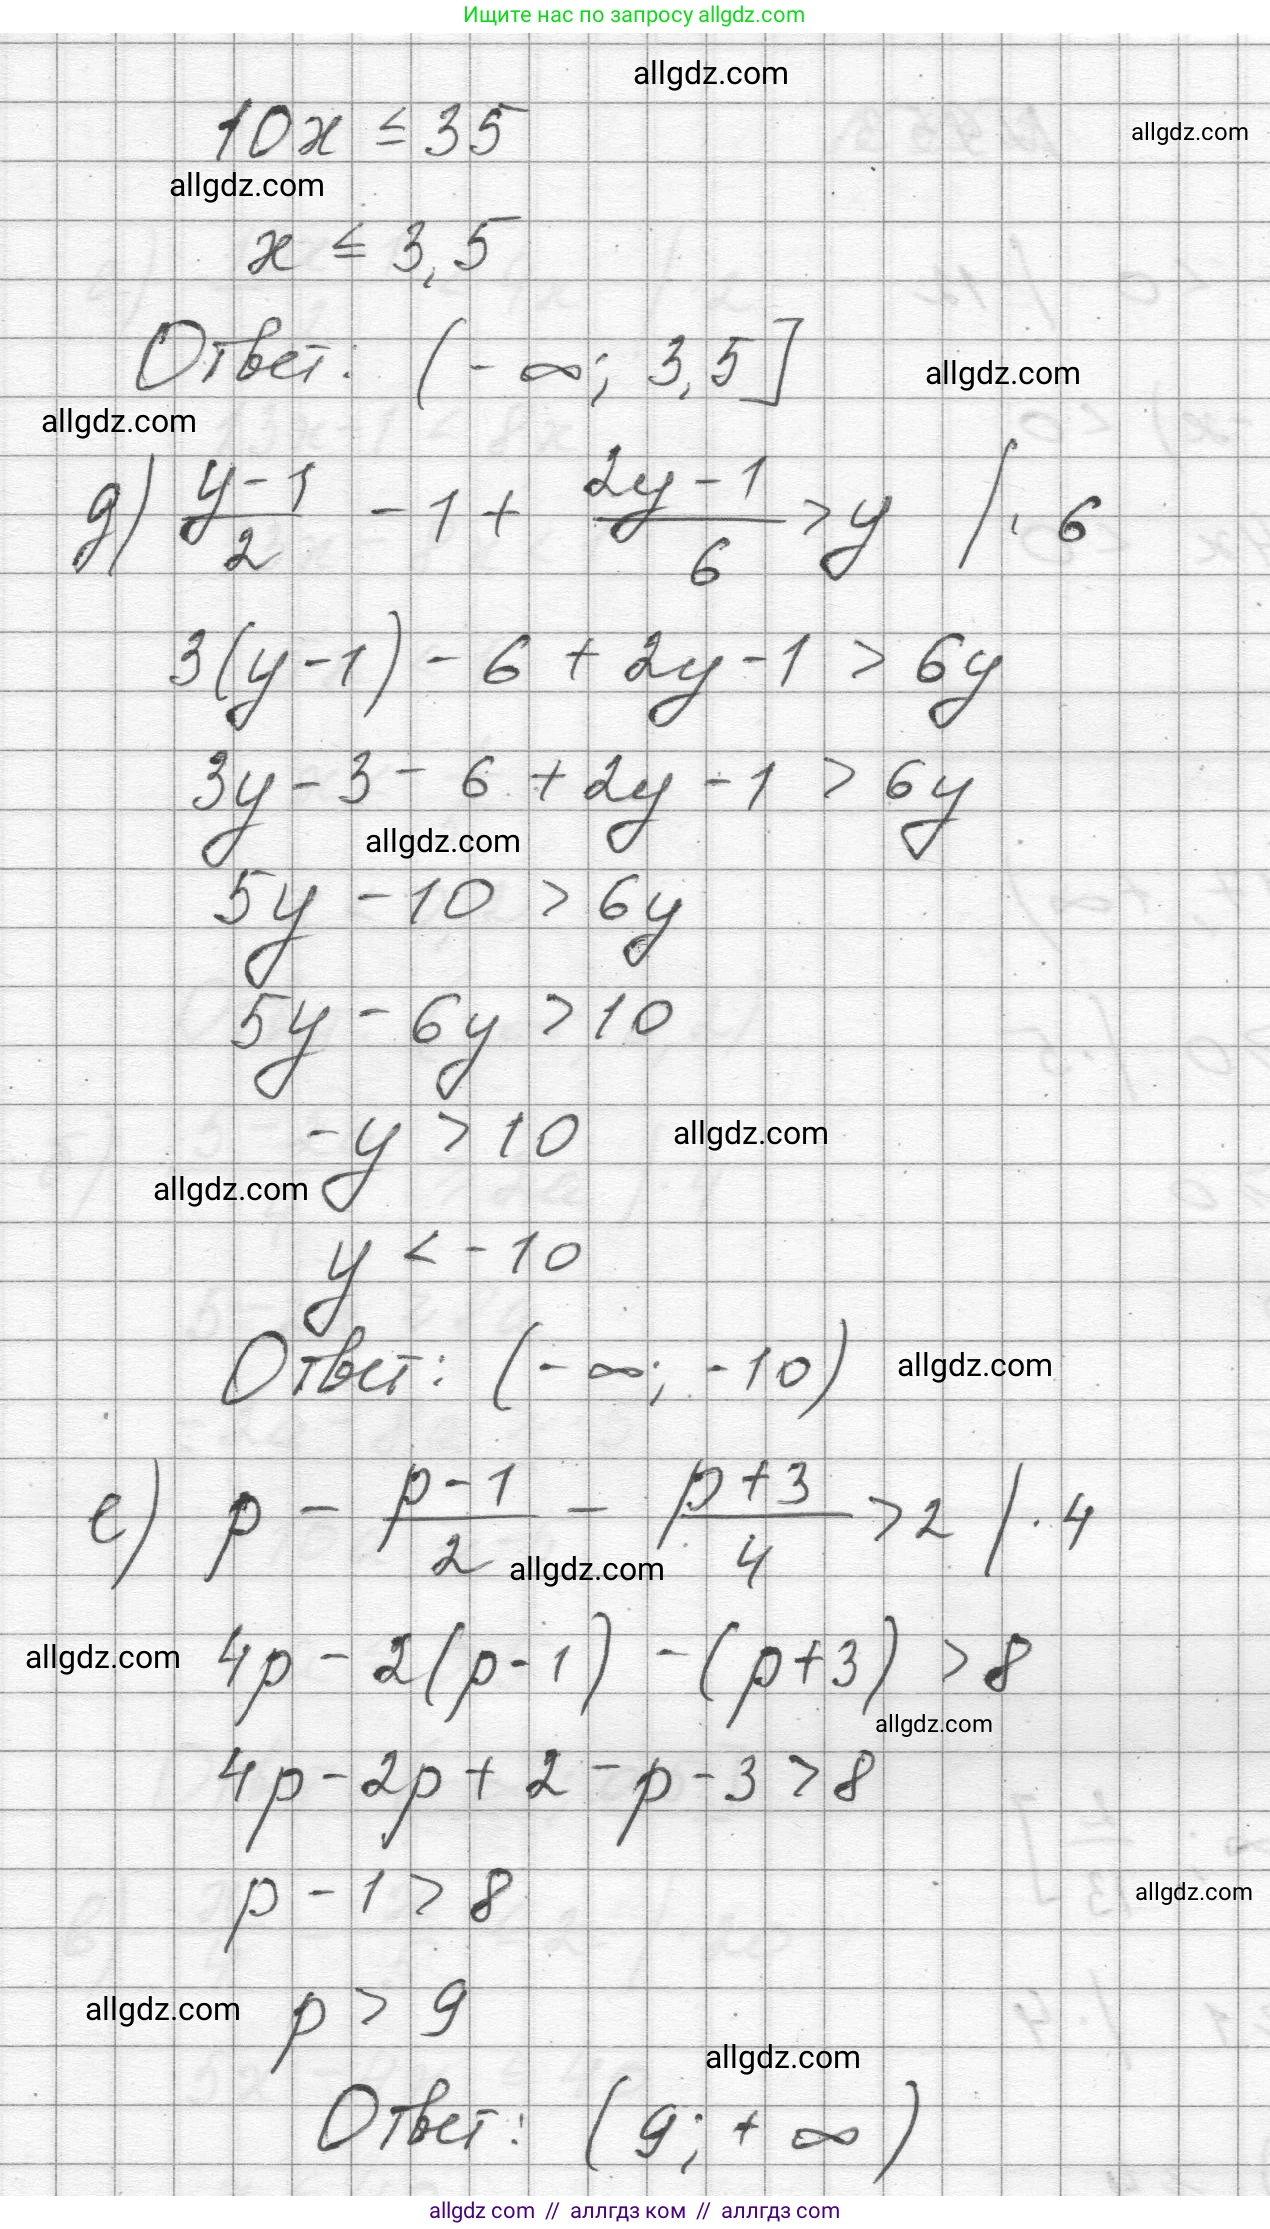 Ищите нас по запросу allgdz.com
allgdz.com
10x ≤ 35
allgdz.com
allgdz.com
x ≤ 3,5
Ответ: (-∞; 3,5]
allgdz.com
allgdz.com
д) (y-1)/2 - 1 + (2y-1)/6 > y | · 6
3(y-1) - 6 + 2y - 1 > 6y
3y - 3 - 6 + 2y - 1 > 6y
allgdz.com
5y - 10 > 6y
5y - 6y > 10
-y > 10
allgdz.com
allgdz.com
y < -10
Ответ: (-∞; -10)
allgdz.com
е) p - (p-1)/2 - (p+3)/4 > 2 | · 4
allgdz.com
allgdz.com
4p - 2(p-1) - (p+3) > 8
allgdz.com
4p - 2p + 2 - p - 3 > 8
p - 1 > 8
allgdz.com
allgdz.com
p > 9
allgdz.com
Ответ: (9; +∞)
allgdz com // аллгдз ком // аллгдз com